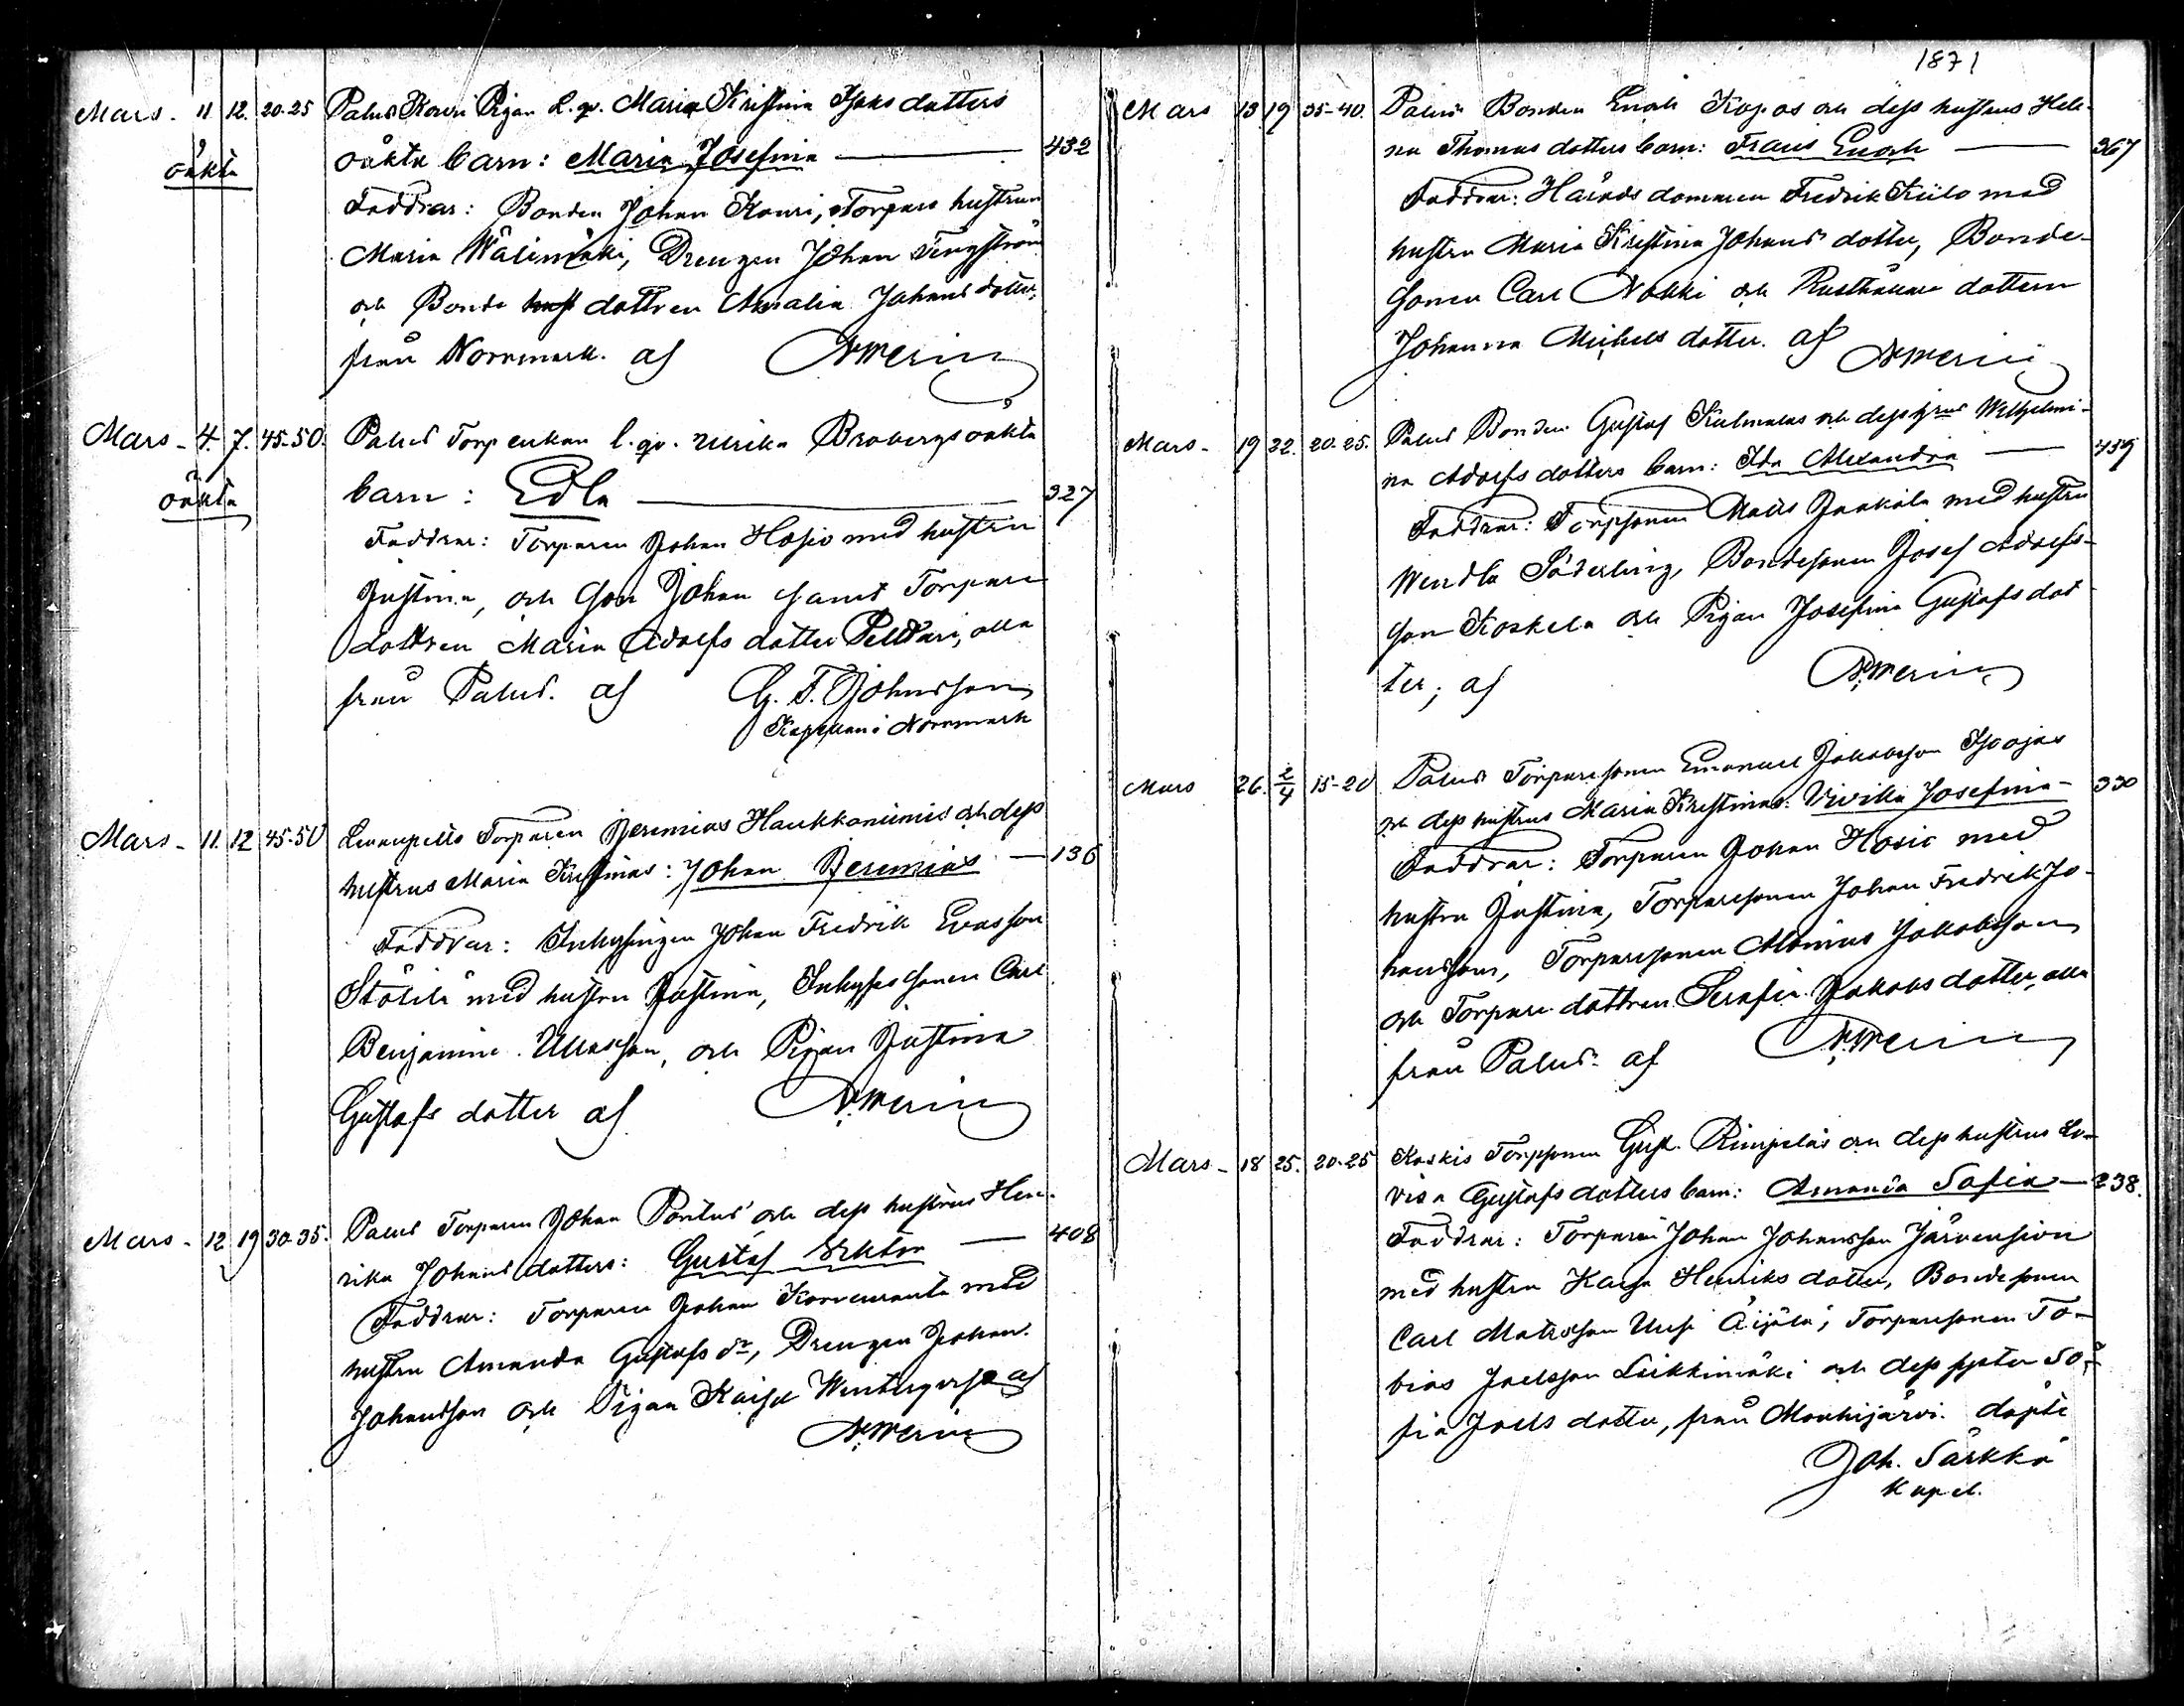 Mars - 11 12. 20-25 Palus Kouri Pigan l. qv. Maria Kristina Isaks dotters
oäkta oäkta barn: Maria Josefina — 432
Faddrar: Bonden Johan Kouri, Torpare hustrun
Maria Wälimäki, Drengen Johan Tengström
och Bonde dottren Amalia Johans dotter,
från Norrmark. af A Merin
Mars - 4. 7. 45-50. Palus Torp enkan l. qv. Ulrika Brobergs oäkta
oäkta barn: Edla — 327
Faddrar: Torparen Johan Hosio med hustrun
Justina, och Son Johan samt Torpare
dottren Maria Adolfs dotter Peltari, alla
från Palus. af G. F. Johnsson
Kapellan i Norrmark
Mars - 11. 12 45-50 Torparen Jeremias Haukkaniemis och dess
hustrus Maria Kristinas: Johan Jeremias — 136
Faddrar: Inhysingen Johan Fredrik Evasson
Ståhle med hustru Justina, Inhyses sonen Carl
Benjamin Ullasson, och Pigan Justina
Gustafs dotter af A. Merin
Mars - 12 19 30-35. Palus Torparen Johan Pontus och dess hustrus Hen-
rika Johans dotters: Gustaf Vektor — 408
Faddrar: Torparen Johan Korvenranta med
hustru Amanda Gustafs dr, Drengen Johan
Johansson och Pigan Kaisa Wintterqvist af
A. Merin
1871
Mars 13 19 35-40. Palus Bonden Enok Kopas och dess hustrus Hele-
na Thomas dotters barn: Frans Enok — 367
Faddrar: Härads domaren Fredrik Kiilo med
hustru Maria Kristina Johans dotter, Bonde-
sonen Carl Nokki och Rusthållare dottern
Johanna Mickels dotter. af A Merin
Mars - 19 22. 20-25. Palus Bonden Gustaf Kulmalas och dess hrus Wilhelmi-
na Adolfs dotters barn: Ida Alexandra — 459
Faddrar: Torpsonen Matts Jaakala med hustru
Wendla Söderling, Bondesonen Josef Adolfs-
son Koskela och Pigan Josefina Gustafs dot-
ter; af A. Merin
Mars 26. 2/4 15-20 Palus Torparesonen Emanuel Jakobsson Isoojas
och dess hustrus Maria Kristinas: Vivika Josefina - 330
Faddrar: Torparen Johan Hosio med
hustru Justina, Torparesonen Johan Fredrik Jo-
hansson, Torparesonen Jakobsson
och Torpare dottren Serafia Jakobs dotter, alla
från Palus. af A. Merin
Mars - 18 25. 20-25 Koskis Torpsonen Gust. Rimpeläs och dess hustrus Lo-
visa Gustafs dotters barn: Amanda Sofia — 238.
Faddrar: Torparen Johan Johansson Järvensivu
med hustru Kaisa Henriks dotter, Bondesonen
Carl Matsson Uusi Äijälä, Torparesonen To-
bias Joelsson Leikkimäki och dess syster So-
fia Joels dotter, från Mouhijärvi. döpte
Joh. Särkkä
Kapel.